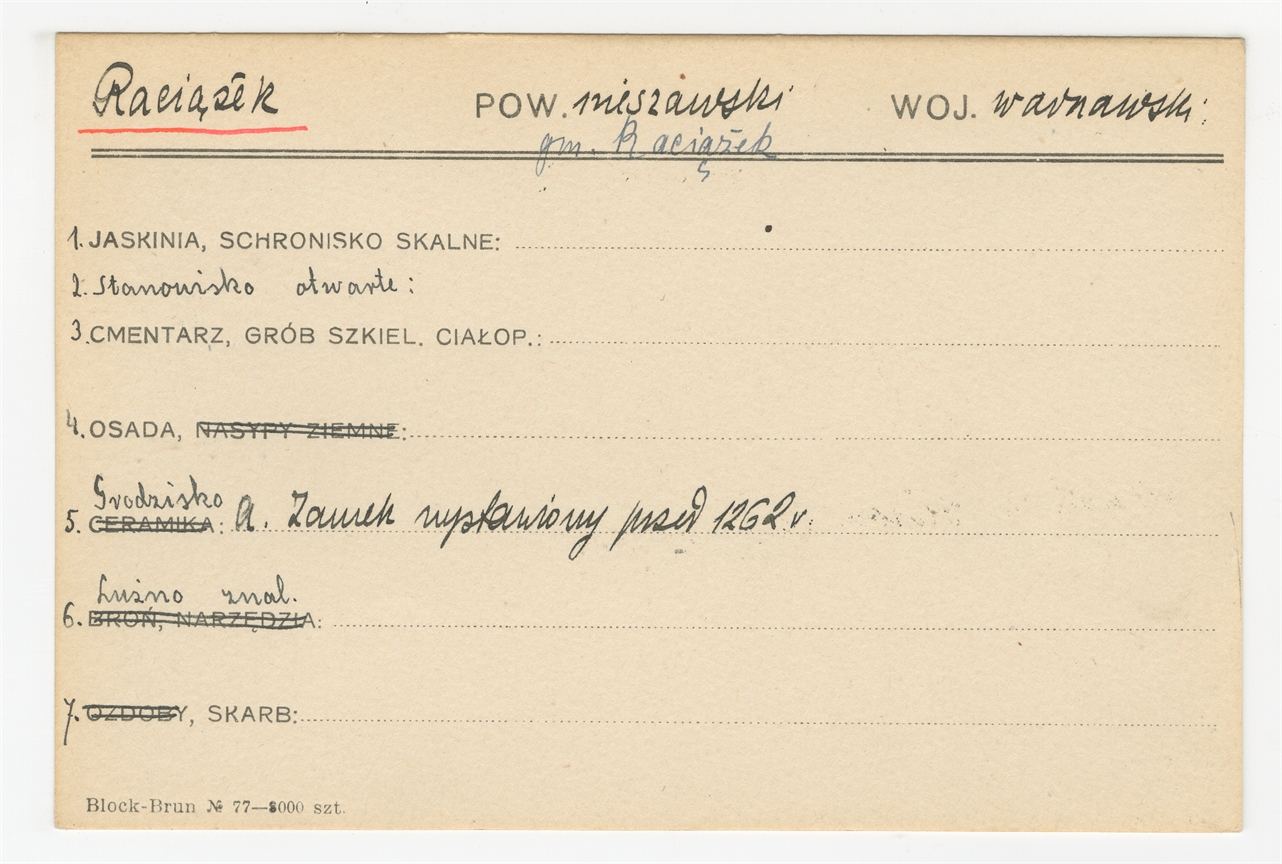 Raciążek POW. nieszawski WOJ. warszawski
gm. Raciążek
1. JASKINIA, SCHRONISKO SKALNE:
2. Stanowisko otwarte:
3. CMENTARZ, GRÓB SZKIEL. CIAŁOP.:
4. OSADA, NASYPY ZIEMNE:
Grodzisko
5. CERAMIKA: A. Zamek wystawiony przed 1262 r.
Luźno znal.
6. BROŃ, NARZĘDZIA:
7. OZDOBY, SKARB:
Block-Brun № 77—8000 szt.